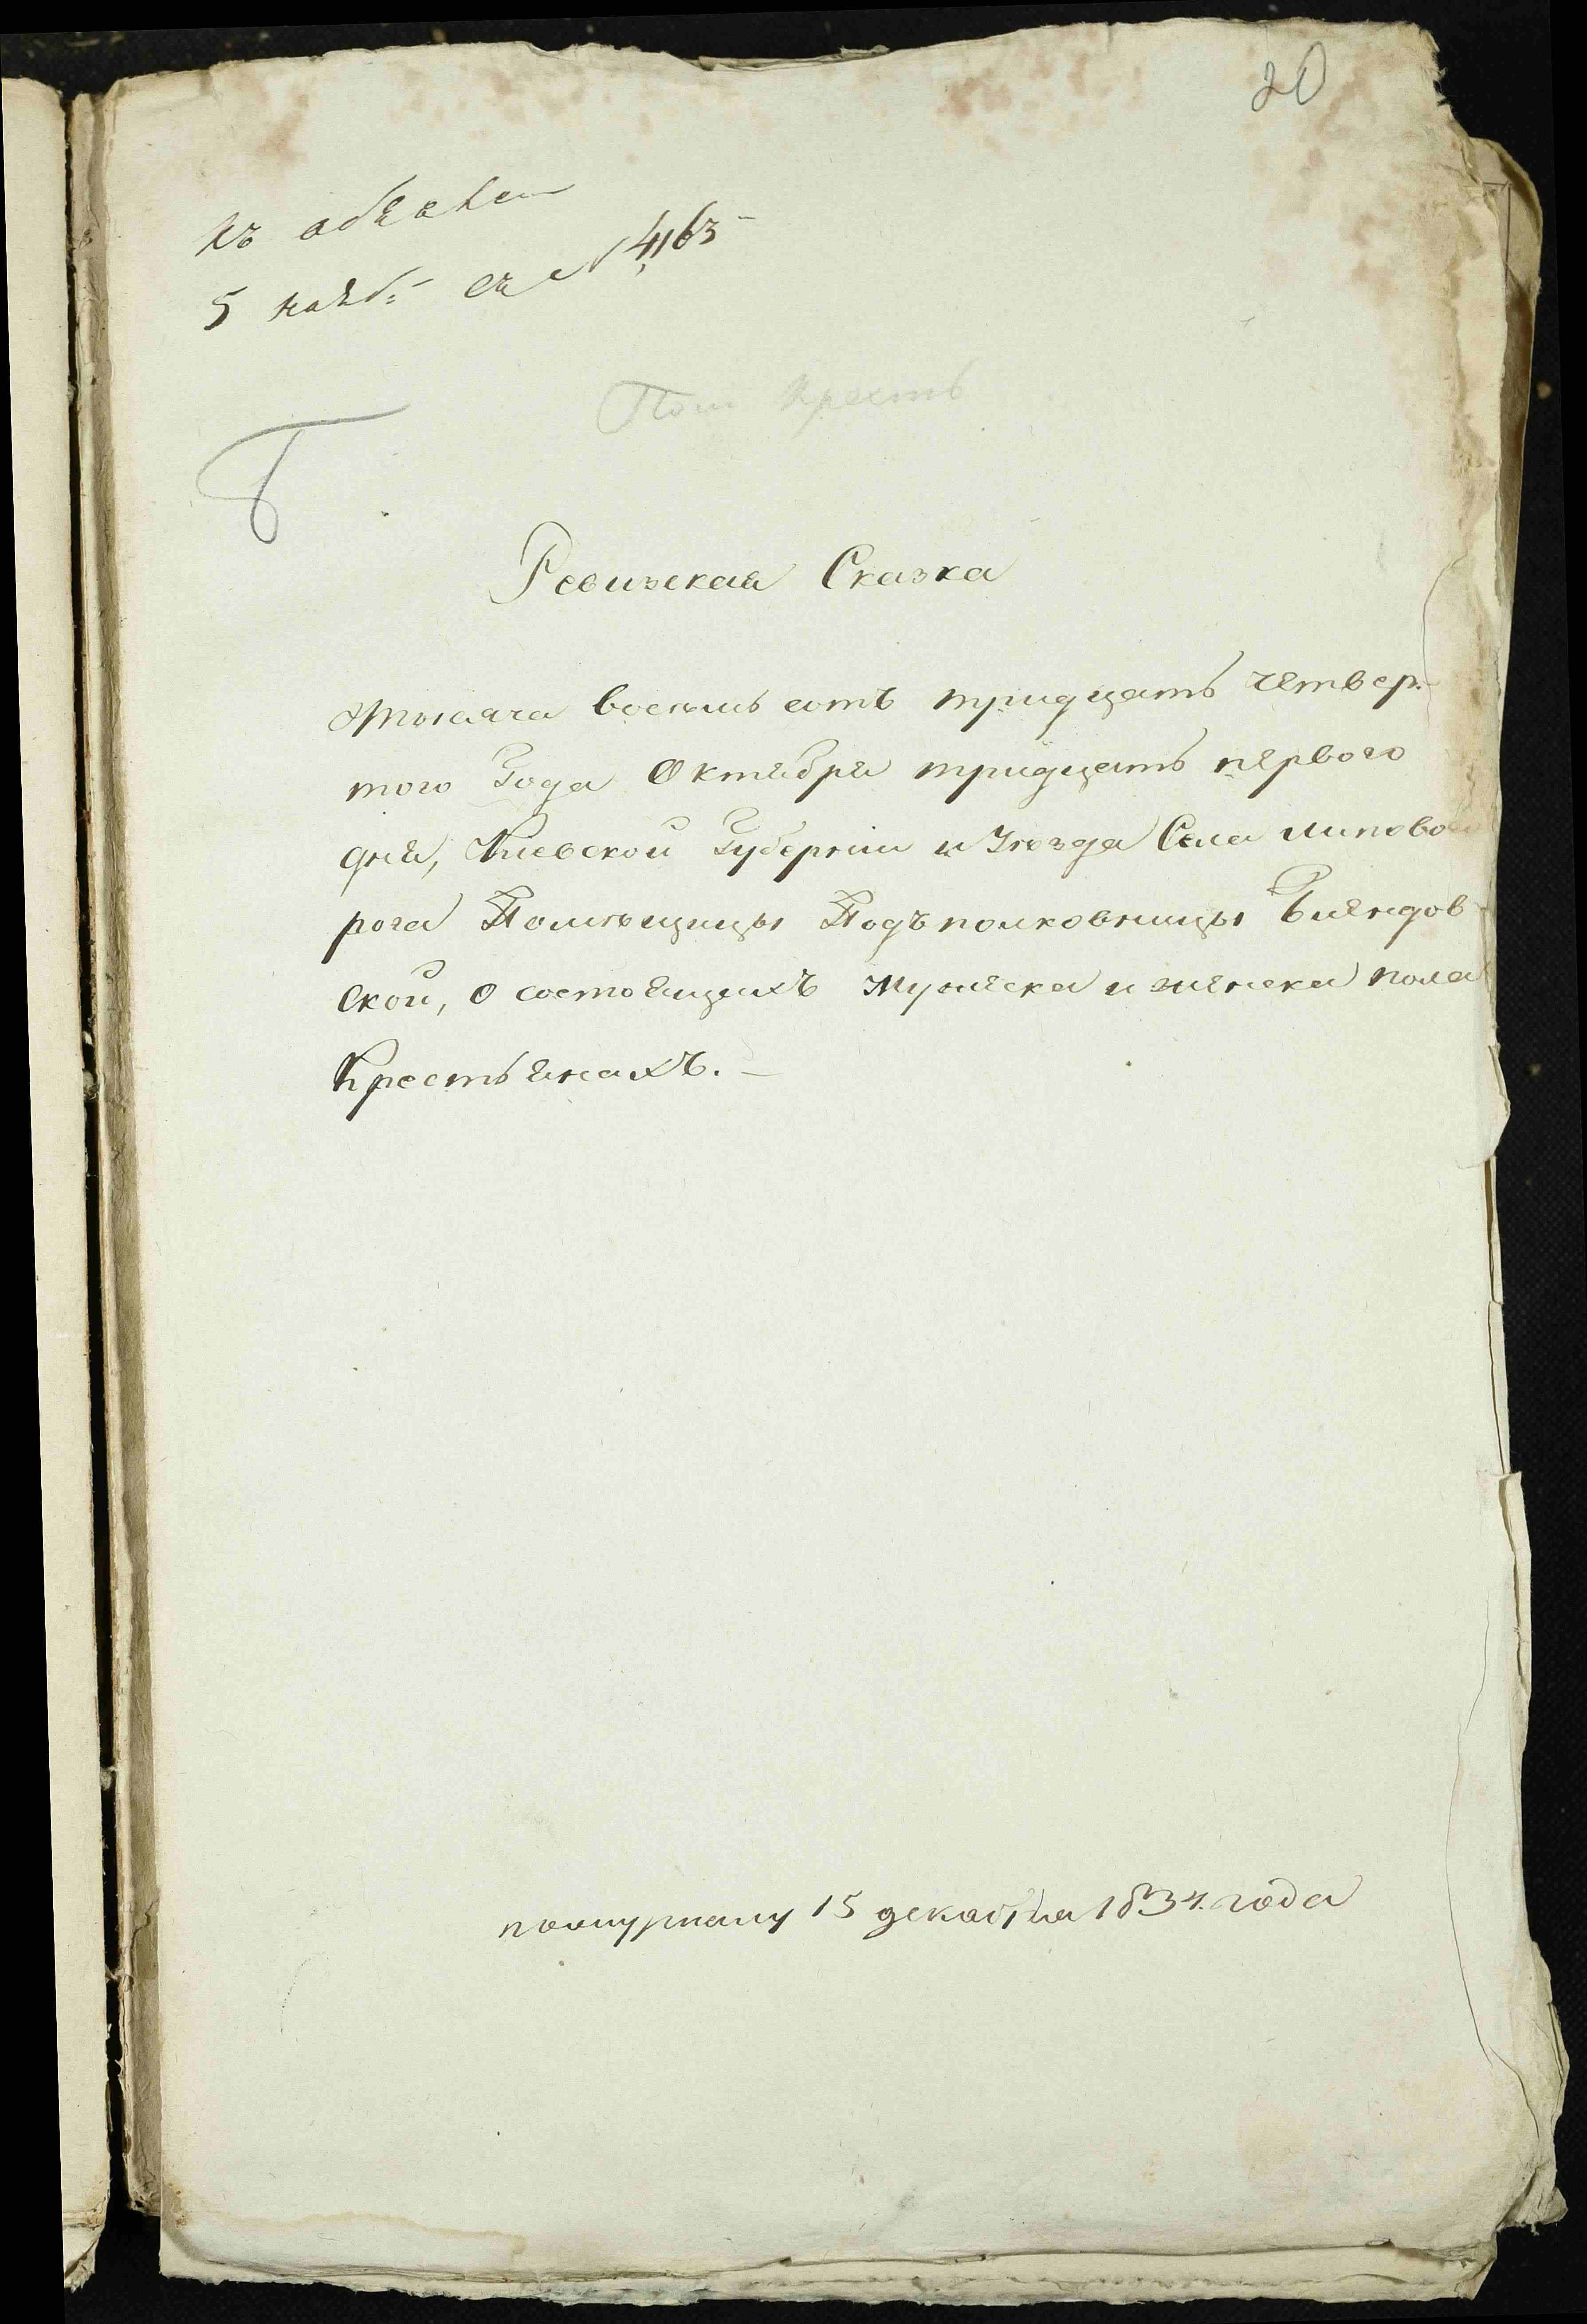 20
къ объявле
5 нояб: съ № 4,163
Пом крестъ
Ревизская Сказка
Тысяча восемь сотъ тридцать четвер-
того Года Октября тридцать перваго
дня, Киевской Губернии и Уезда Села Липоваго
рога Помещицы Подъполковницы
ской, о состоящихъ мужеска и женска пола
Крестьянахъ.
15 декабря 1834. года